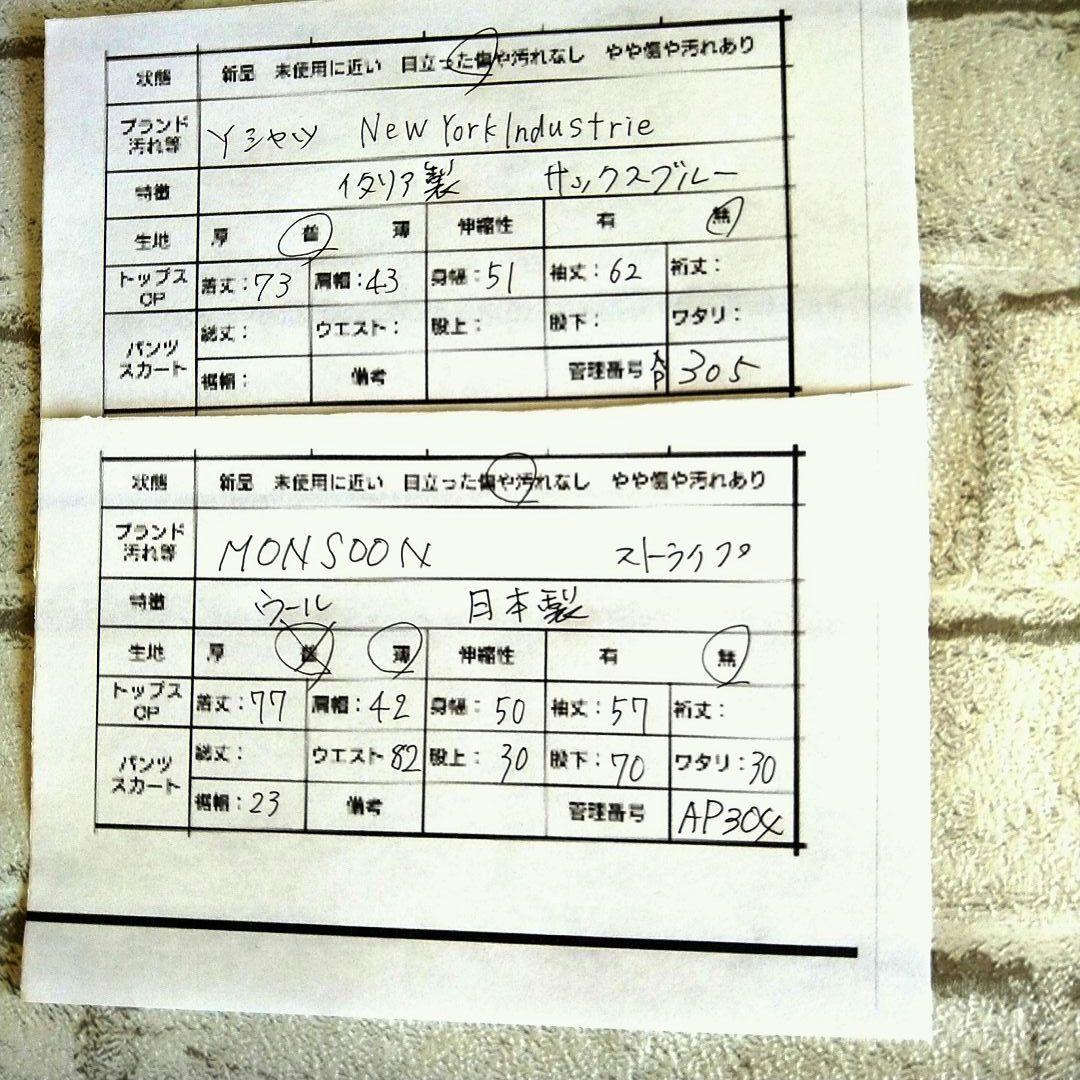 状態 新品 未使用に近い 目立った傷や汚れなし やや傷や汚れあり
ブランド 汚れ等 Yシャツ New York Industrie
特徴 イタリア製 サックスブルー
生地 厚 普 薄 伸縮性 有 無
トップス OP 着丈:73 肩幅:43 身幅:51 袖丈:62 裄丈:
パンツ スカート 総丈: ウエスト: 股上: 股下: ワタリ:
裾幅: 備考 管理番号 AP 305
状態 新品 未使用に近い 目立った傷や汚れなし やや傷や汚れあり
ブランド 汚れ等 MONSOON ストライプ
特徴 ウール 日本製
生地 厚 普 薄 伸縮性 有 無
トップス OP 着丈:77 肩幅:42 身幅:50 袖丈:57 裄丈:
パンツ スカート 総丈: ウエスト 82 股上:30 股下:70 ワタリ:30
裾幅:23 備考 管理番号 AP304